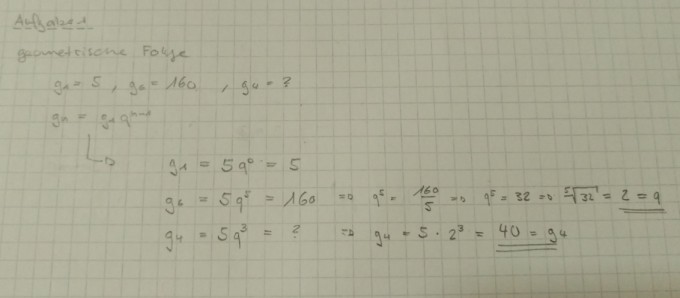 Aufgabe 1
geometrische Folge
g₁ = 5 , g₆ = 160 , g₄ = ?
gₙ = g₁ qⁿ⁻¹
g₁ = 5 q⁰ = 5
g₆ = 5 q⁵ = 160 ⇒ q⁵ = 160/5 ⇒ q⁵ = 32 ⇒ ⁵√32 = 2 = q
g₄ = 5 q³ = ? ⇒ g₄ = 5 · 2³ = 40 = g₄